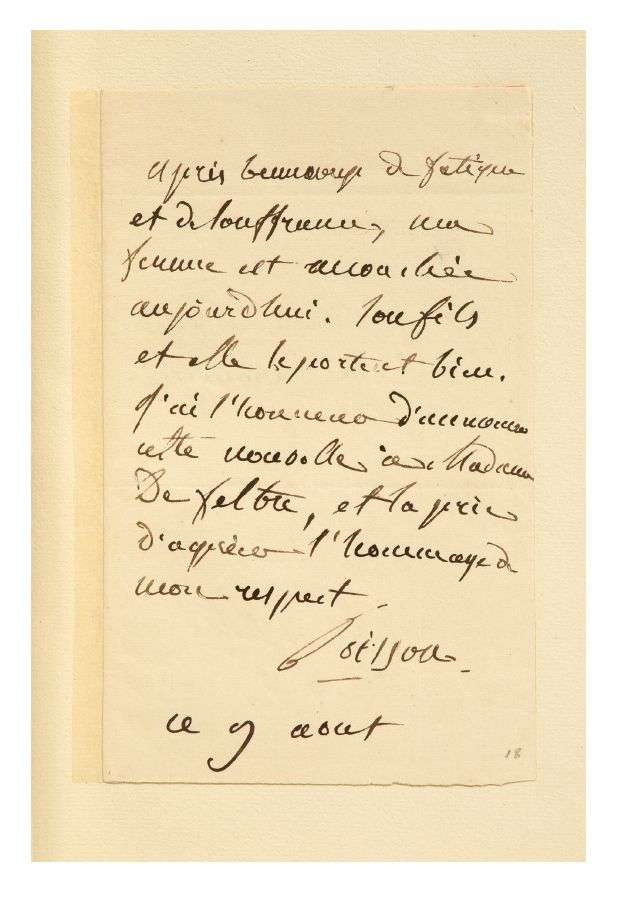 après beaucoup de fatigue
et de souffrance, ma
femme est accouchée
aujourd'hui. Son fils
et elle se portent bien.
J'ai l'honneur d'annoncer
cette nouvelle à Madame
De feltre, et la prie
d'agréer l'hommage de
mon respect
Poisson
ce 9 aout
18